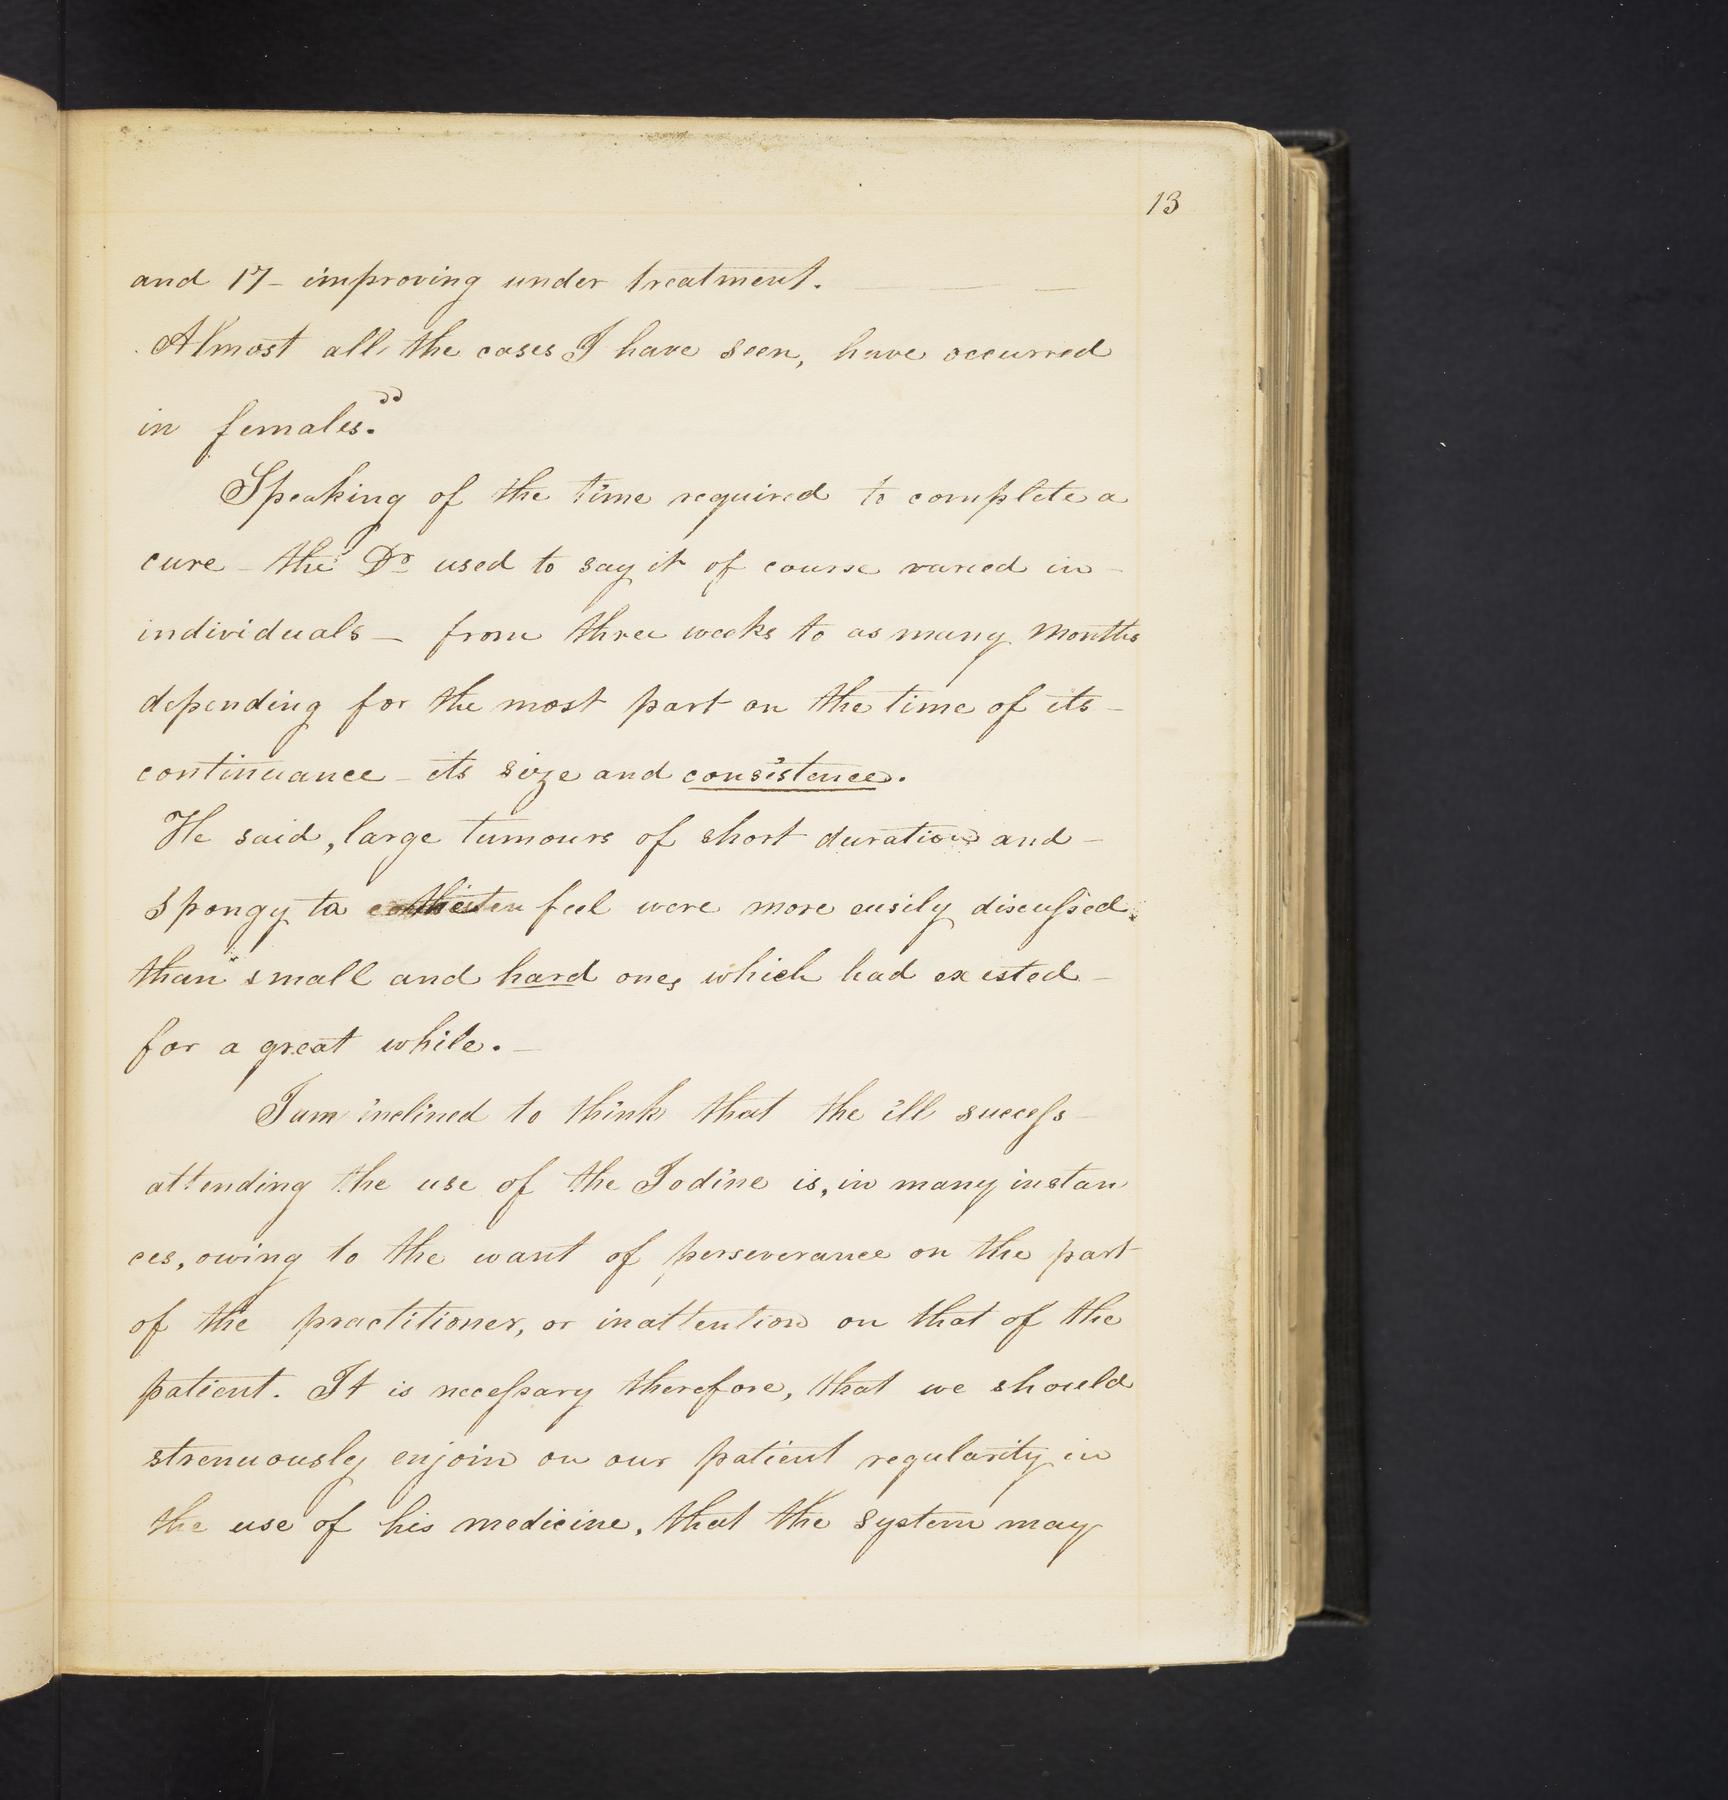 13
and 17 – improving under treatment. – –
Almost all the cases I have seen, have occurred
in females."
Speaking of the time required to complete a
cure – the Dr used to say it of course varied in –
individuals – from three weeks to as many months
depending for the most part on the time of its –
continuance – its size and consistence.
He said, large tumours of short duration and –
spongy to feel were more easily discussed
than small and hard ones which had existed –
for a great while. –
I am inclined to think that the ill success –
attending the use of the Iodine is, in many instan
ces, owing to the want of perseverance on the part
of the practitioner, or inattention on that of the
patient. It is necessary therefore, that we should
strenuously enjoin on our patient regularity in
the use of his medicine, that the system may